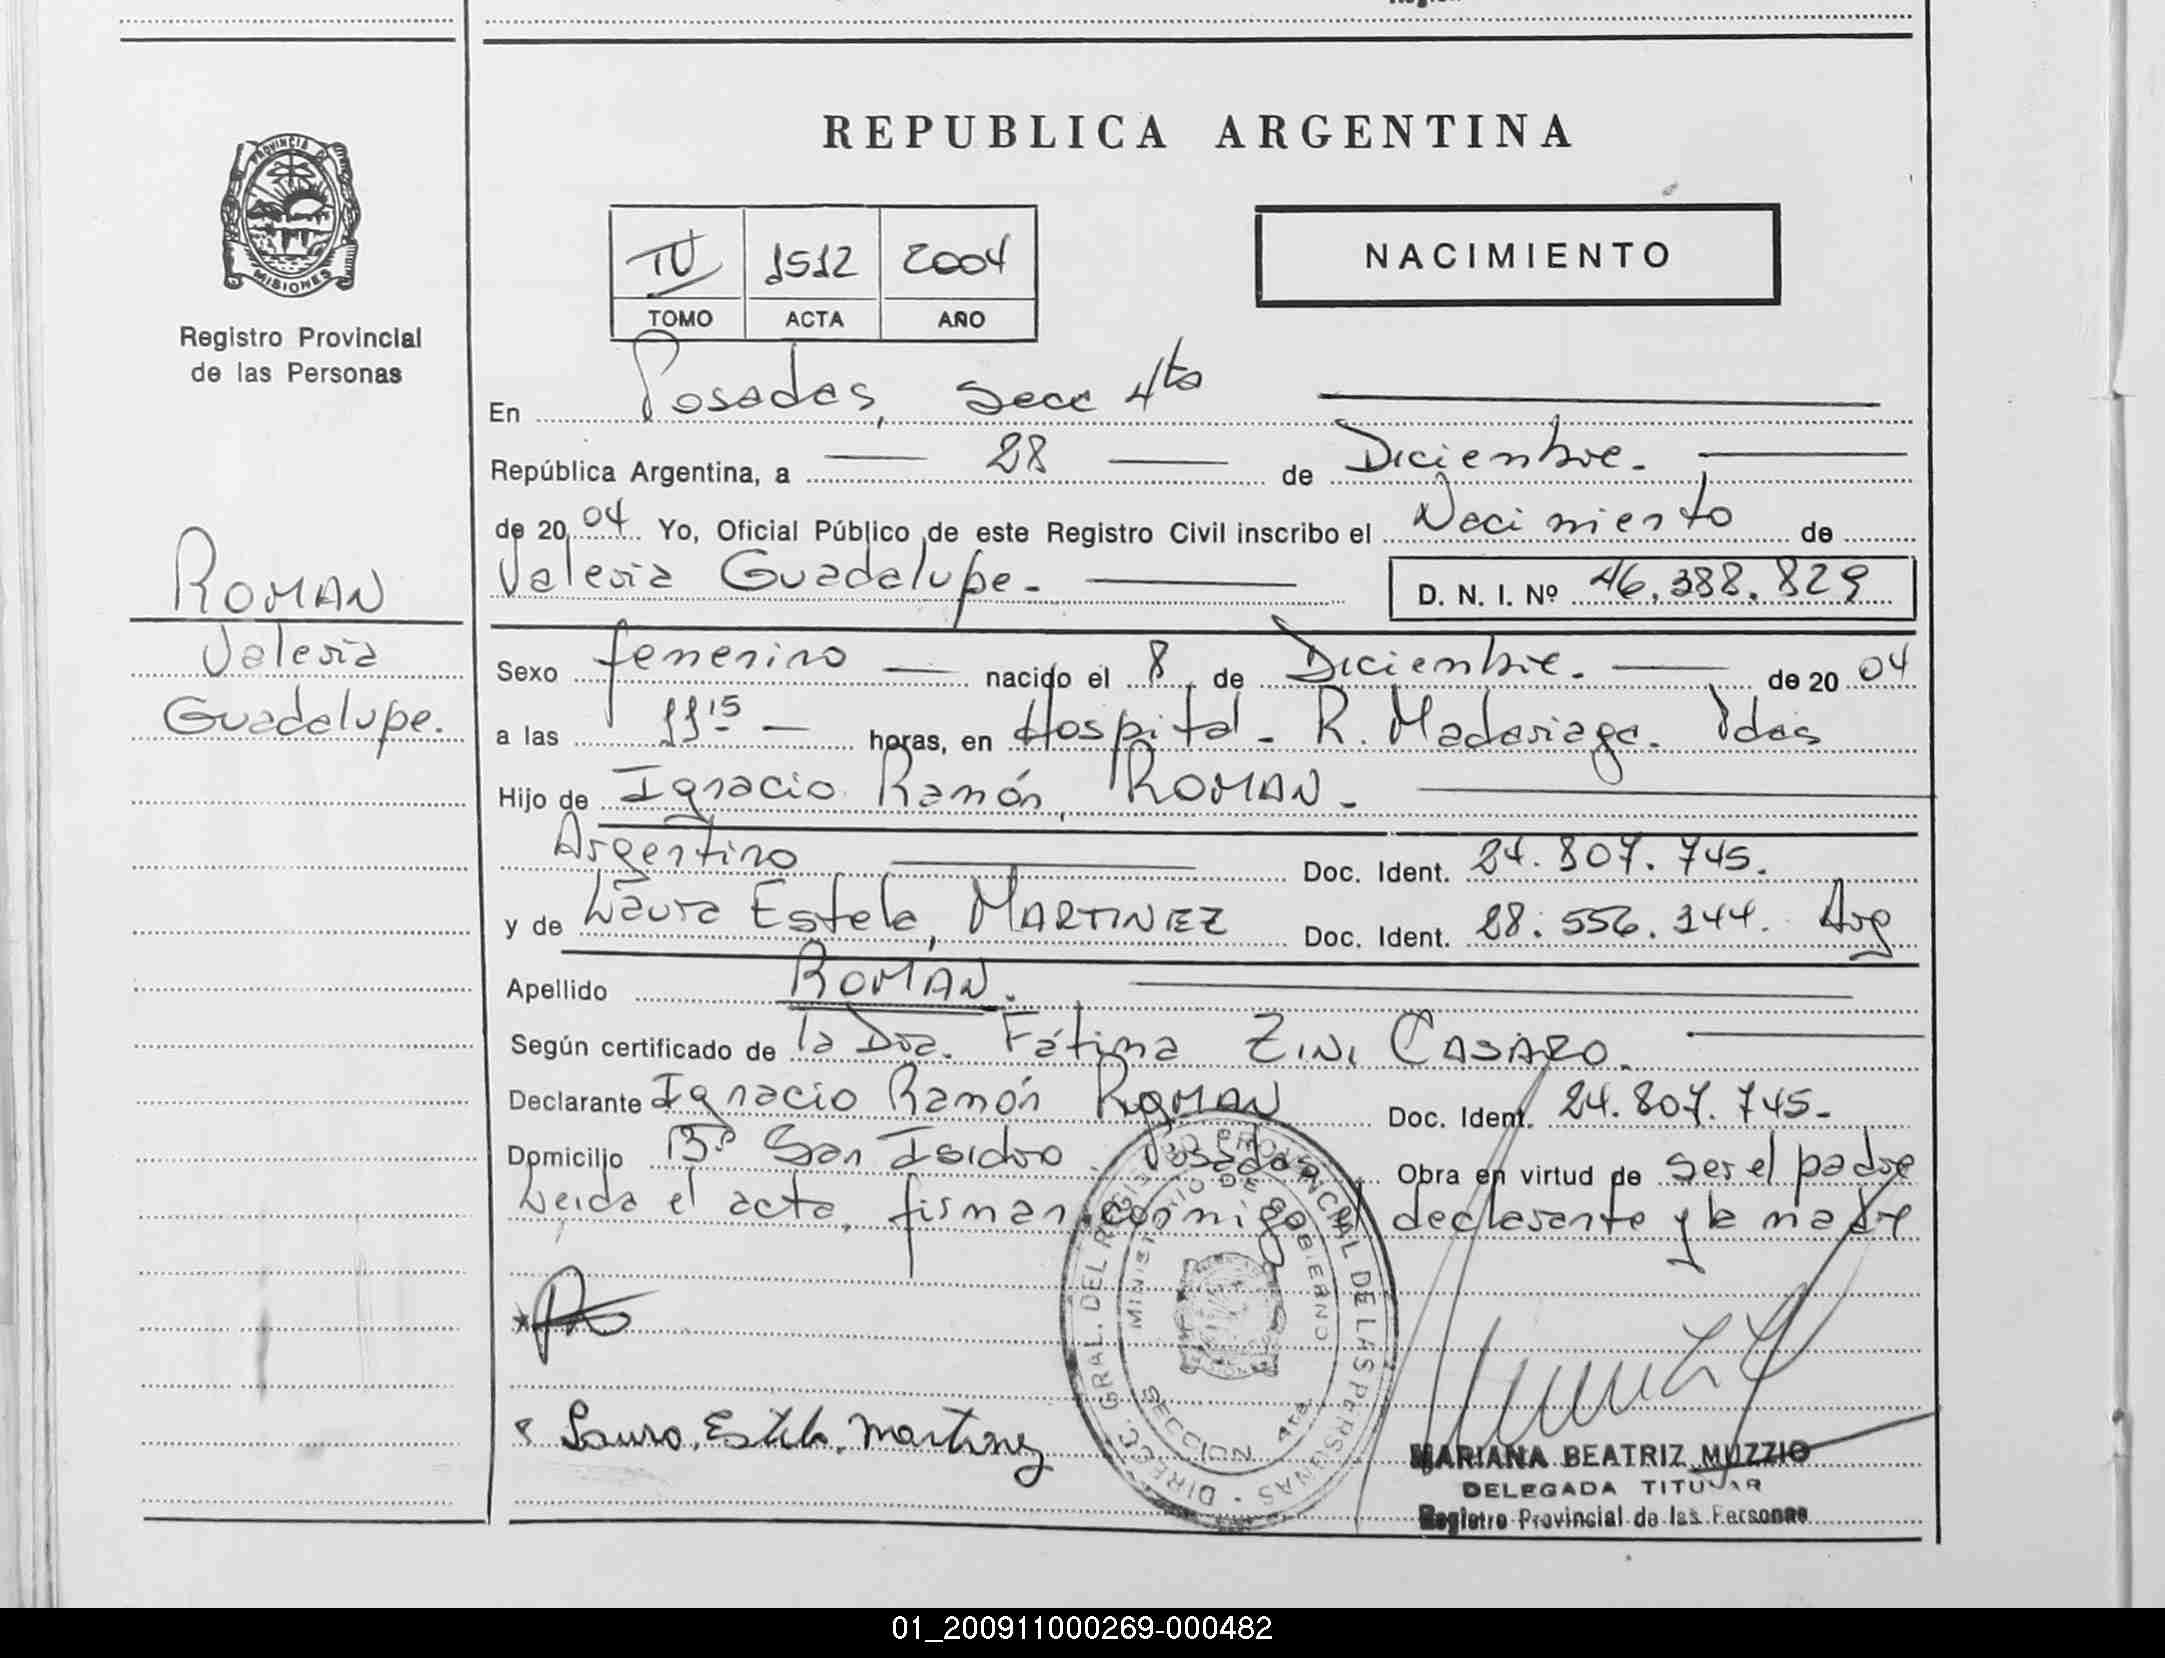 REPUBLICA ARGENTINA
PROVINCIA D
MISIONES
Registro Provincial
de las Personas
ROMAN
Valeria
Guadalupe.
IV 1512 2004
TOMO ACTA AÑO
NACIMIENTO
En Posadas, Secc 4ta
República Argentina, a 28 de Diciembre.
de 20 04 Yo, Oficial Público de este Registro Civil inscribo el Nacimiento de
Valeria Guadalupe. D. N. I. Nº 46.388.829
Sexo femenino nacido el 8 de Diciembre. de 20 04
a las 11 15 horas, en Hospital. R. Madariaga. Pdas
Hijo de Ignacio Ramón, ROMAN.
Argentino Doc. Ident. 24.807.745.
y de Laura Estela, MARTINEZ Doc. Ident. 28.556.144. Arg
Apellido ROMAN.
Según certificado de la Dra. Fátima ZINI CASARO.
Declarante Ignacio Ramón ROMAN Doc. Ident. 24.807.745.
Domicilio Bº San Isidro. Posadas Obra en virtud de ser el padre
Leida el acta, firman conmigo el declarante y la madre
DIRECC. GRAL. DEL REGISTRO PROVINCIAL DE LAS PERSONAS
MINISTERIO DE GOBIERNO
SECCION 4ta.
Laura Estela Martinez
MARIANA BEATRIZ MUZZIO
DELEGADA TITULAR
Registro Provincial de las Personas
01_200911000269-000482